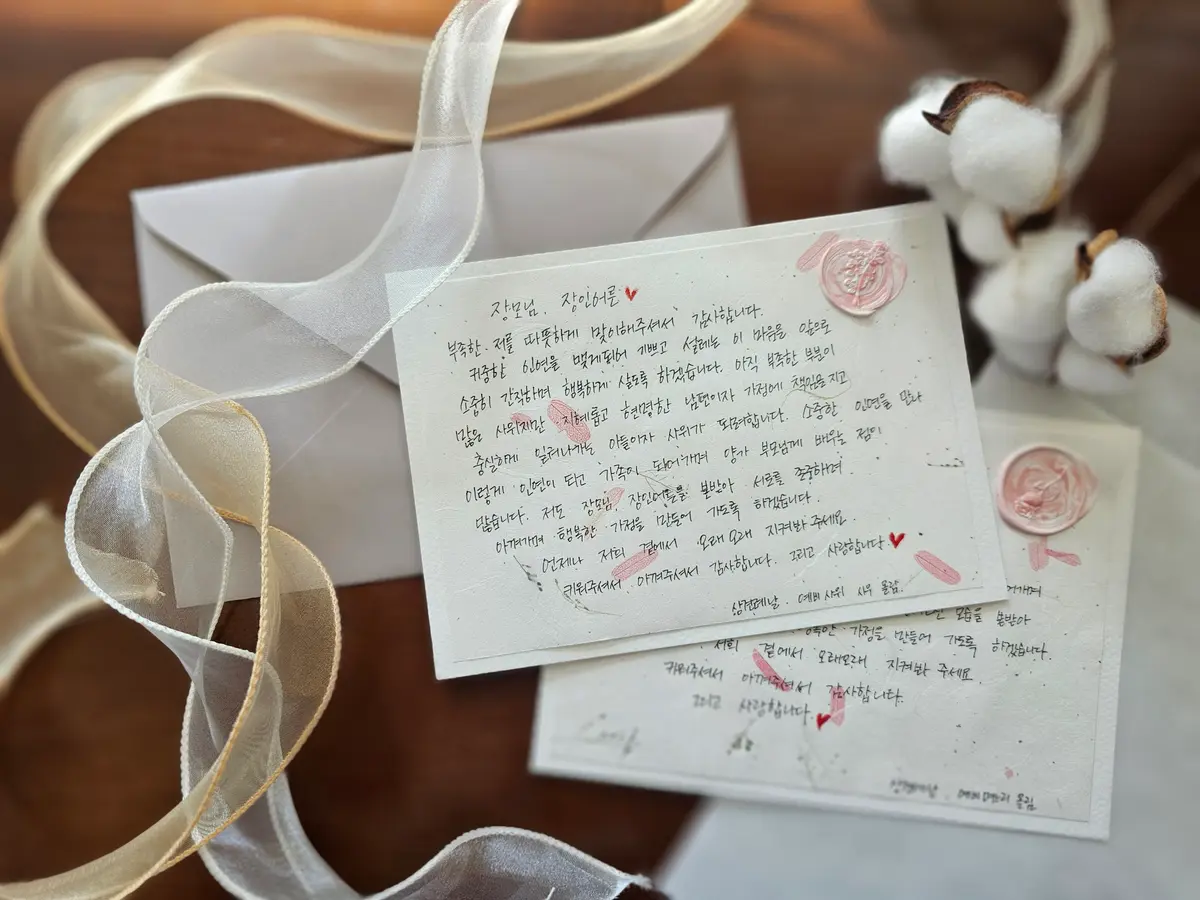 장모님, 장인어른
부족한 저를 따뜻하게 맞이해주셔서 감사합니다.
귀중한 인연을 맺게되어 기쁘고 설레는 이 마음을 앞으로
소중히 간직하며 행복하게 살도록 하겠습니다. 아직 부족한 부분이
많은 사위지만 지혜롭고 현명한 남편이자 가정에 책임을 지고
충실하게 일려나가는 아들이자 사위가 되려합니다. 소중한 인연을 만나
이렇게 인연이 되고 가족이 되어가며 양가 부모님께 배우는 점이
많습니다. 저도 장모님, 장인어른을 본받아 서로를 존중하며
아껴가며 행복한 가정을 만들어 가도록 하겠습니다.
언제나 저희 곁에서 오래오래 지켜봐 주세요.
키워주셔서 아껴주셔서 감사합니다. 그리고 사랑합니다.
상견례날, 예비사위 올림.
모습을 본받아
가정을 만들어 가도록 하겠습니다.
저희 곁에서 오래오래 지켜봐 주세요.
키워주셔서 아껴주셔서 감사합니다.
그리고 사랑합니다.
상견례날, 예비며느리 올림